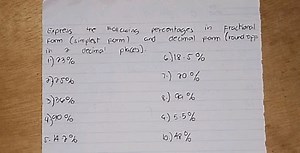 Express the following percentages in fractional
form (simplest form) and decimal form (round off
in 2 decimal places).
1) 23% 6) 18.5%
2) 75% 7.) 20%
3) 36% 8.)
4) 90% 9) 5.5%
5. 14.7% 10.) 48%